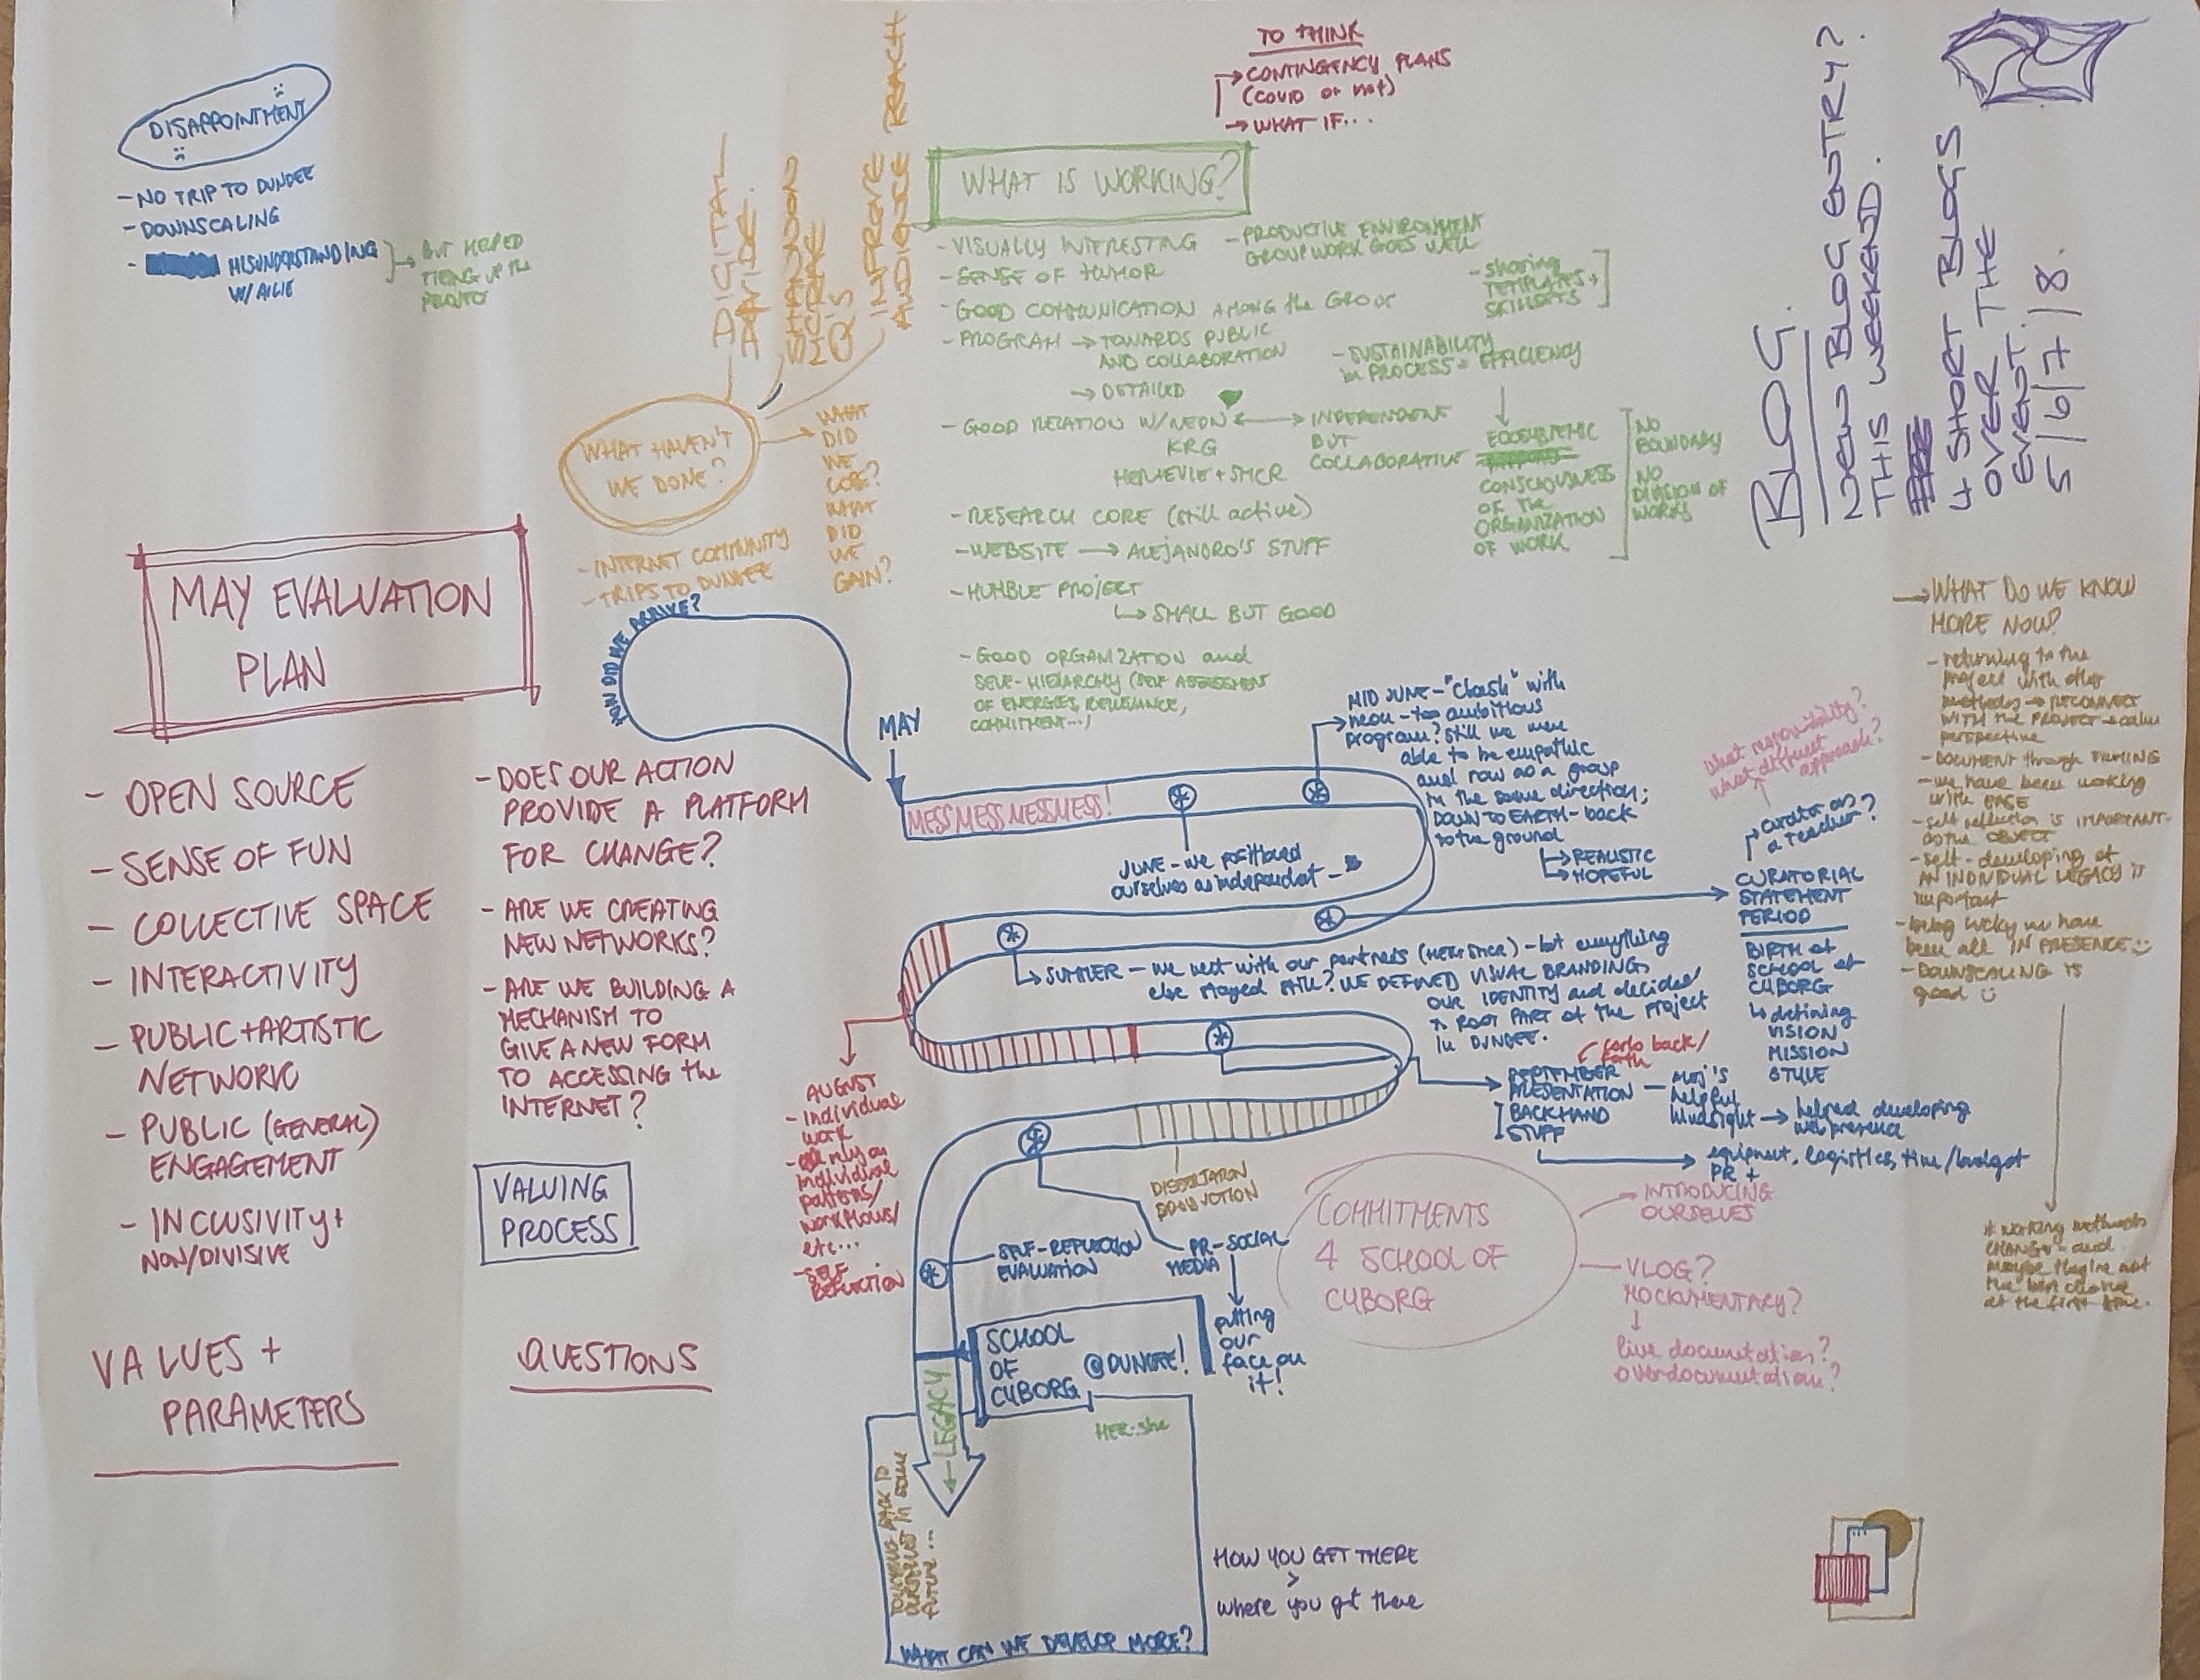 DISAPPOINTMENT
- NO TRIP TO DUNDEE
- DOWNSCALING
- MISUNDERSTANDING
W/ AILIE
BUT HELPED
UP the
PROJECT
TO THINK
→ CONTINGENCY PLANS
(COVID or not)
→ WHAT IF...
DIGITAL
Q'S
IMPROVE
AUDIENCE REACH
WHAT HAVEN'T
WE DONE?
WHAT
DID
WE
LOSE?
WHAT
DID
WE
GAIN?
- INTERNET COMMUNITY
- TRIPS TO DUNDEE
WHAT IS WORKING?
- VISUALLY INTERESTING
- PRODUCTIVE ENVIRONMENT
GROUP WORK GOES WELL
- SENSE OF HUMOR
- sharing
TEMPLATES +
SKILLSETS
- GOOD COMMUNICATION AMONG the GROUP
- PROGRAM → TOWARDS PUBLIC
AND COLLABORATION
→ DETAILED
- SUSTAINABILITY
in PROCESS = EFFICIENCY
- GOOD RELATION W/NEON ↔ INDEPENDENT
KRG
BUT
COLLABORATIVE
ECOSYSTEMIC
CONSCIOUSNESS
OF THE
ORGANIZATION
OF WORK
NO
BOUNDARY
NO
DIVISION OF
WORKS
- RESEARCH CORE (still active)
- WEBSITE → ALEJANDRO'S STUFF
- HUMBLE PROJECT
↳ SMALL BUT GOOD
- GOOD ORGANIZATION and
SELF-HIERARCHY (SELF ASSESSMENT
OF ENERGIES, RESILIENCE,
COMMITMENT...)
BLOG.
NEW BLOG ENTRY?
THIS WEEKEND.
4 SHORT BLOGS
OVER THE
EVENT.
5/6/7/8.
MAY EVALUATION
PLAN
- OPEN SOURCE
- SENSE OF FUN
- COLLECTIVE SPACE
- INTERACTIVITY
- PUBLIC + ARTISTIC
NETWORK
- PUBLIC (GENERAL)
ENGAGEMENT
- INCLUSIVITY +
NON/DIVISIVE
VALUES +
PARAMETERS
- DOES OUR ACTION
PROVIDE A PLATFORM
FOR CHANGE?
- ARE WE CREATING
NEW NETWORKS?
- ARE WE BUILDING A
MECHANISM TO
GIVE A NEW FORM
TO ACCESSING the
INTERNET?
VALUING
PROCESS
QUESTIONS
HOW DID WE ARRIVE?
MAY
MESS MESS MESS MESS!
JUNE - we positioned
ourselves as independent -
MID JUNE - "Clash" with
neon - too ambitious
program? still we were
able to be empathic
and row as a group
in the same direction;
DOWN TO EARTH - back
to the ground
→ REALISTIC
→ HOPEFUL
What responsibility?
what different
approach?
curator as
a teacher?
CURATORIAL
STATEMENT
PERIOD
BIRTH of
SCHOOL of
CYBORG
↳ defining
VISION
MISSION
STYLE
↳ SUMMER - we met with our partners - but everything
else stayed still? WE DEFINED VISUAL BRANDING,
OUR IDENTITY and decided
ROOT PART of the PROJECT
in DUNDEE.
AUGUST
- Individual
work
- rely on
individual
patterns/
workflows/
etc...
- SELF
REFLECTION
back/
forth
SEPTEMBER
PRESENTATION
BACKHAND
STUFF
helpful
hindsight → helped developing
web presence
equipment, logistics, time/budget
PR +
DISSERTATION
SELF-REFLECTION
EVALUATION
PR - SOCIAL
MEDIA
putting
our
face on
it!
SCHOOL
OF
CYBORG
@DUNDEE!
← LEGACY
HER.she
future...
WHAT CAN WE DEVELOP MORE?
HOW YOU GET THERE
>
where you get there
COMMITMENTS
4 SCHOOL OF
CYBORG
INTRODUCING
OURSELVES
VLOG?
MOCKUMENTARY?
live documentation?
overdocumentation?
→ WHAT DO WE KNOW
MORE NOW?
- returning to the
project with other
methods → RECONNECT
WITH the PROJECT
perspective
- DOCUMENT through FILMING
- we have been working
with EASE
- self reflection is IMPORTANT
OBJECT
- self-developing of
AN INDIVIDUAL LEGACY is
important
- being lucky we have
been all IN PRESENCE
- DOWNSCALING is
good
* working methods
CHANGE - and
maybe they're not
the best choice
at the first time.